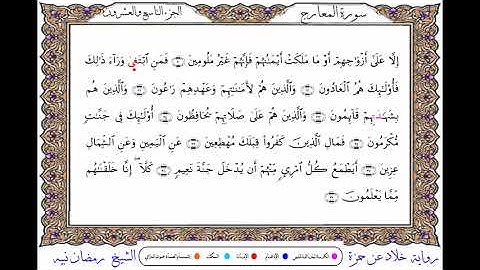 سورة المعارج الجزء التاسع والعشرون
إِلَّا عَلَىٰٓ أَزْوَٰجِهِمْ أَوْ مَا مَلَكَتْ أَيْمَٰنُهُمْ فَإِنَّهُمْ غَيْرُ مَلُومِينَ ۝ فَمَنِ ٱبْتَغَىٰ وَرَآءَ ذَٰلِكَ
فَأُو۟لَٰٓئِكَ هُمُ ٱلْعَادُونَ ۝ وَٱلَّذِينَ هُمْ لِأَمَٰنَٰتِهِمْ وَعَهْدِهِمْ رَٰعُونَ ۝ وَٱلَّذِينَ هُم
بِشَهَٰدَتِهِمْ قَآئِمُونَ ۝ وَٱلَّذِينَ هُمْ عَلَىٰ صَلَاتِهِمْ يُحَافِظُونَ ۝ أُو۟لَٰٓئِكَ فِى جَنَّٰتٍ
مُّكْرَمُونَ ۝ فَمَالِ ٱلَّذِينَ كَفَرُوا۟ قِبَلَكَ مُهْطِعِينَ ۝ عَنِ ٱلْيَمِينِ وَعَنِ ٱلشِّمَالِ
عِزِينَ ۝ أَيَطْمَعُ كُلُّ ٱمْرِئٍ مِّنْهُمْ أَن يُدْخَلَ جَنَّةَ نَعِيمٍ ۝ كَلَّآ إِنَّا خَلَقْنَٰهُم
مِّمَّا يَعْلَمُونَ ۝
رواية خلاد عن حمزة الشيخ رمضان نبيه